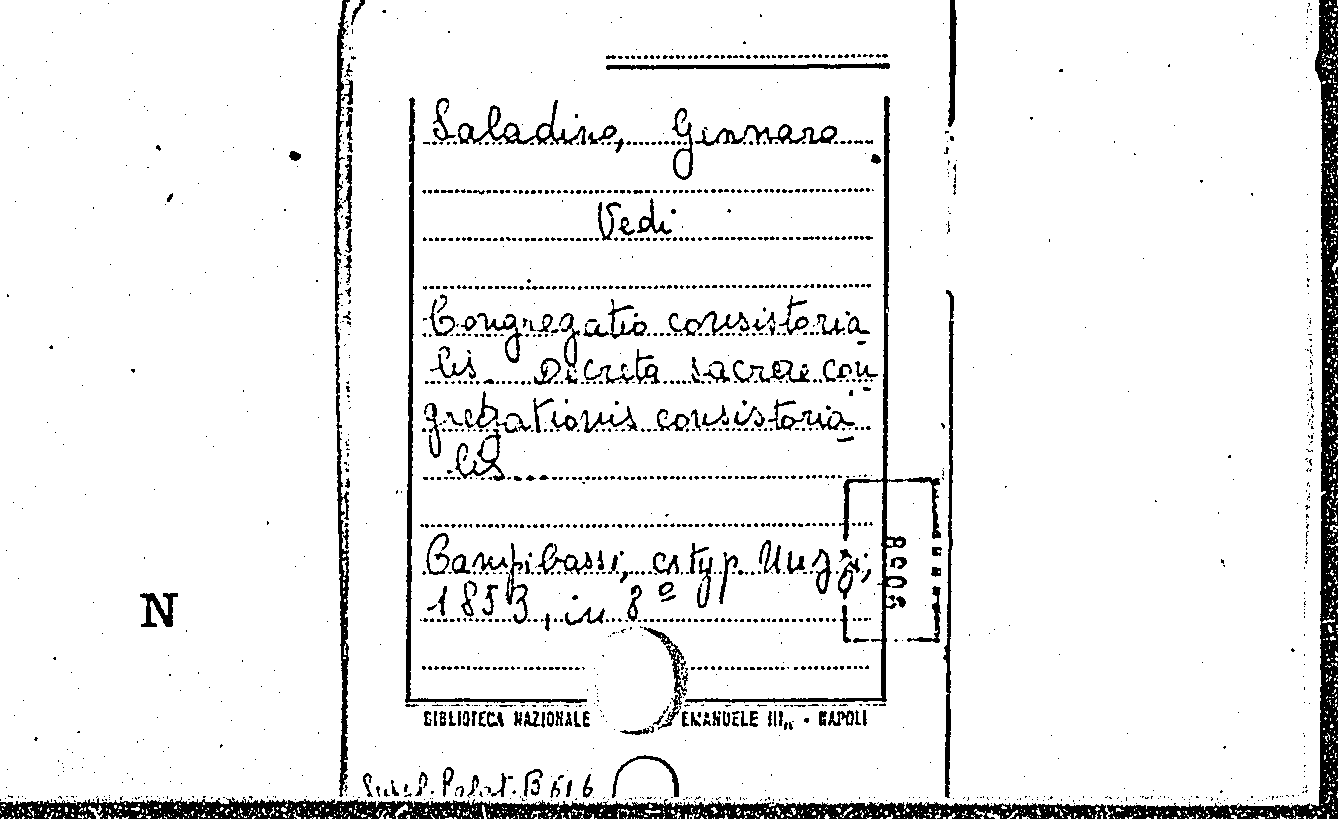 Saladino, Gennaro
Vedi
Congregatio consistoria
lis. Decreta sacrae con
gregationis consistoria
lis...
Campibassi, ex typ Nuzzi,
1853, in 8º
N
BIBLIOTECA NAZIONALE EMANUELE III, - NAPOLI
Palat. B 616